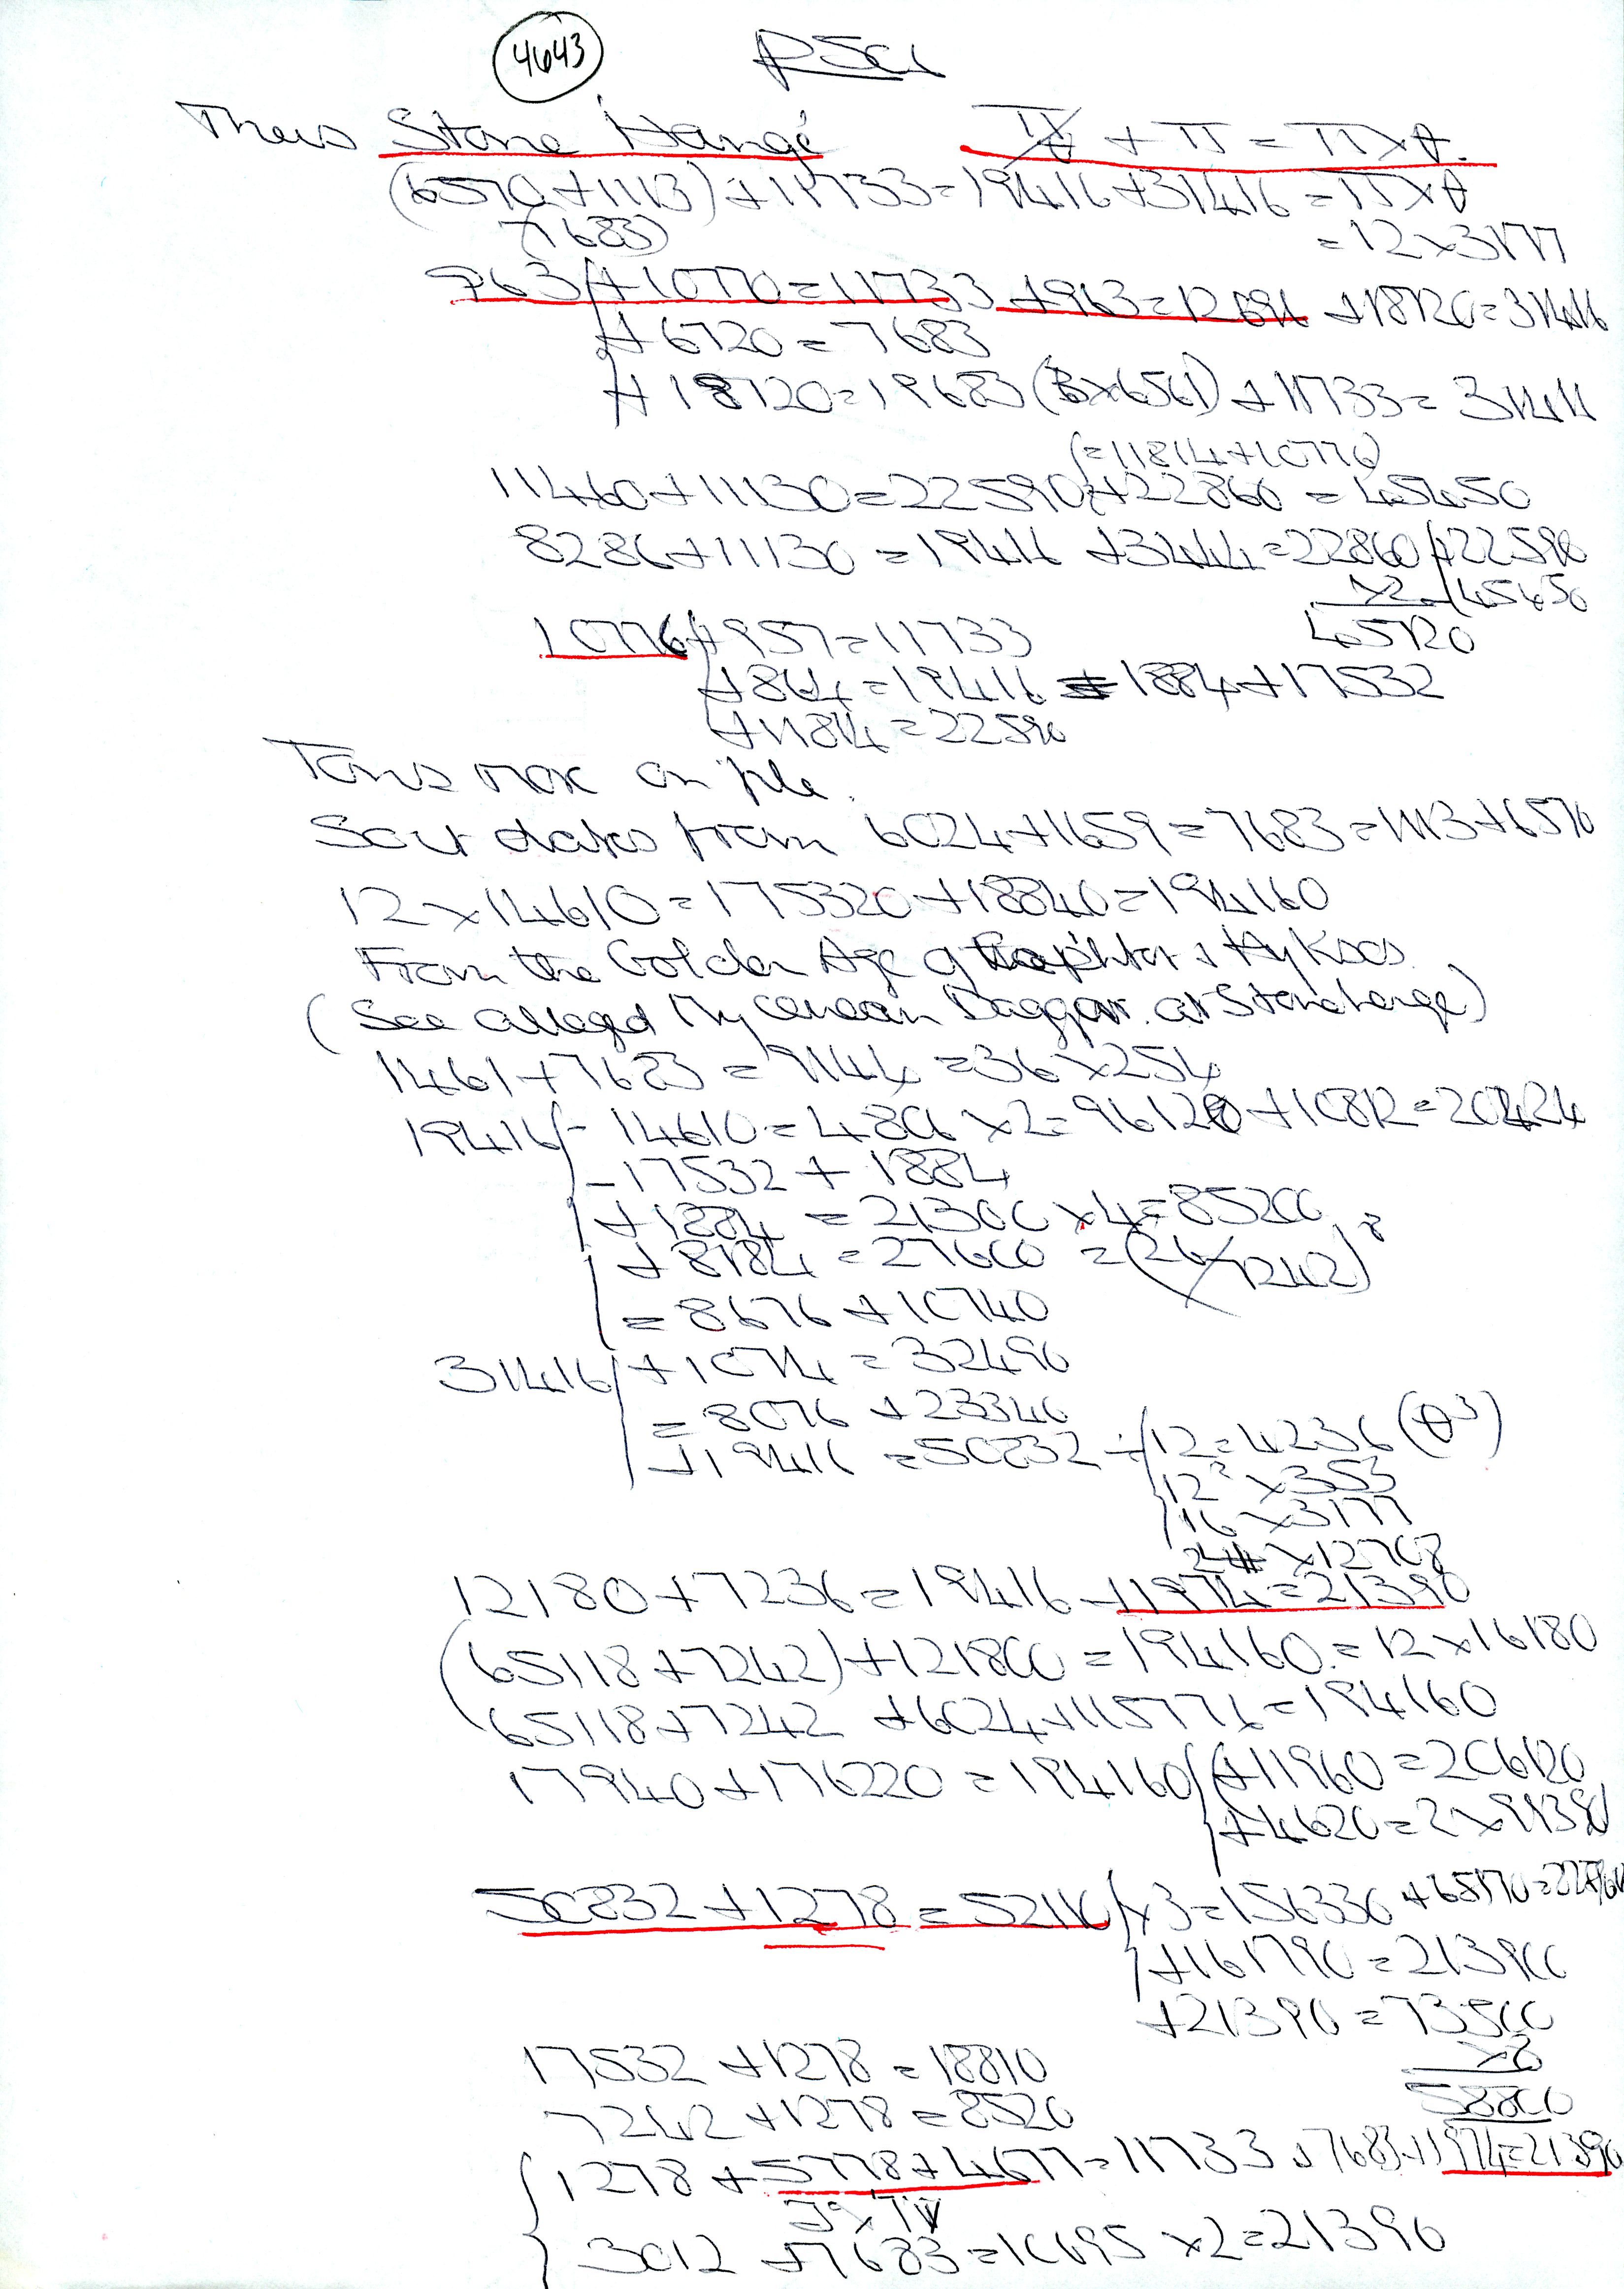 4643
Theirs Stone 'Hange'
+ π = π x θ.
(6570 + 1113) + 11733 = 19416 + 31416 = π x θ
(7683)
= 12 x 3177
963 + 10770 = 11733 + 963 = 12696 + 18720 = 31416
+ 6720 = 7683
+ 18720 = 19683 (3 x 6561) + 11733 = 31416
(= 11814 + 10776)
11460 + 11130 = 22590 + 22860 = 45450
8286 + 11130 = 19416 + 3444 = 22860 + 22590
x 2 45450
45720
10776 + 957 = 11733
+ 8640 = 19416 = 1884 + 17532
+ 11814 = 22590
on file.
dates from 6024 + 1659 = 7683 = 1113 + 6570
12 x 14610 = 175320 + 18840 = 194160
From the Golden Age of & Hyksos.
(See alleged Mycenean Dagger. at Stonehenge)
1461 + 7683 = 9144 = 36 x 254
19416 - 14610 = 4806 x 2 = 96120 + 10812 = 20424
- 17532 + 1884
+ 1884 = 21300 x 4 = 85200
+ 8184 = 27600 = (26/1242)
= 8676 + 10740
31416 + 1074 = 32490
= 8076 + 23340
+ 19416 = 50832 ÷ 12 = 4236 (θ³)
12² x 353
16 x 3177
x 12708
12180 + 7236 = 19416 - 11974 = 21390
(65118 + 7242) + 121800 = 194160 = 12 x 16180
65118 + 7242 + 6024 + 115776 = 194160
17940 + 176220 = 194160 + 11960 = 206120
+ 4620 = 2 x 99390
50832 + 1278 = 52110 x 3 = 156330
+ 161790 = 213900
+ 21390 = 73500
x 8
58800
17532 + 1278 = 18810
7242 + 1278 = 8520
1278 + 5778 + 4677 = 11733 + 7683 + 1974 = 21390
3012 + 7683 = 10695 x 2 = 21390